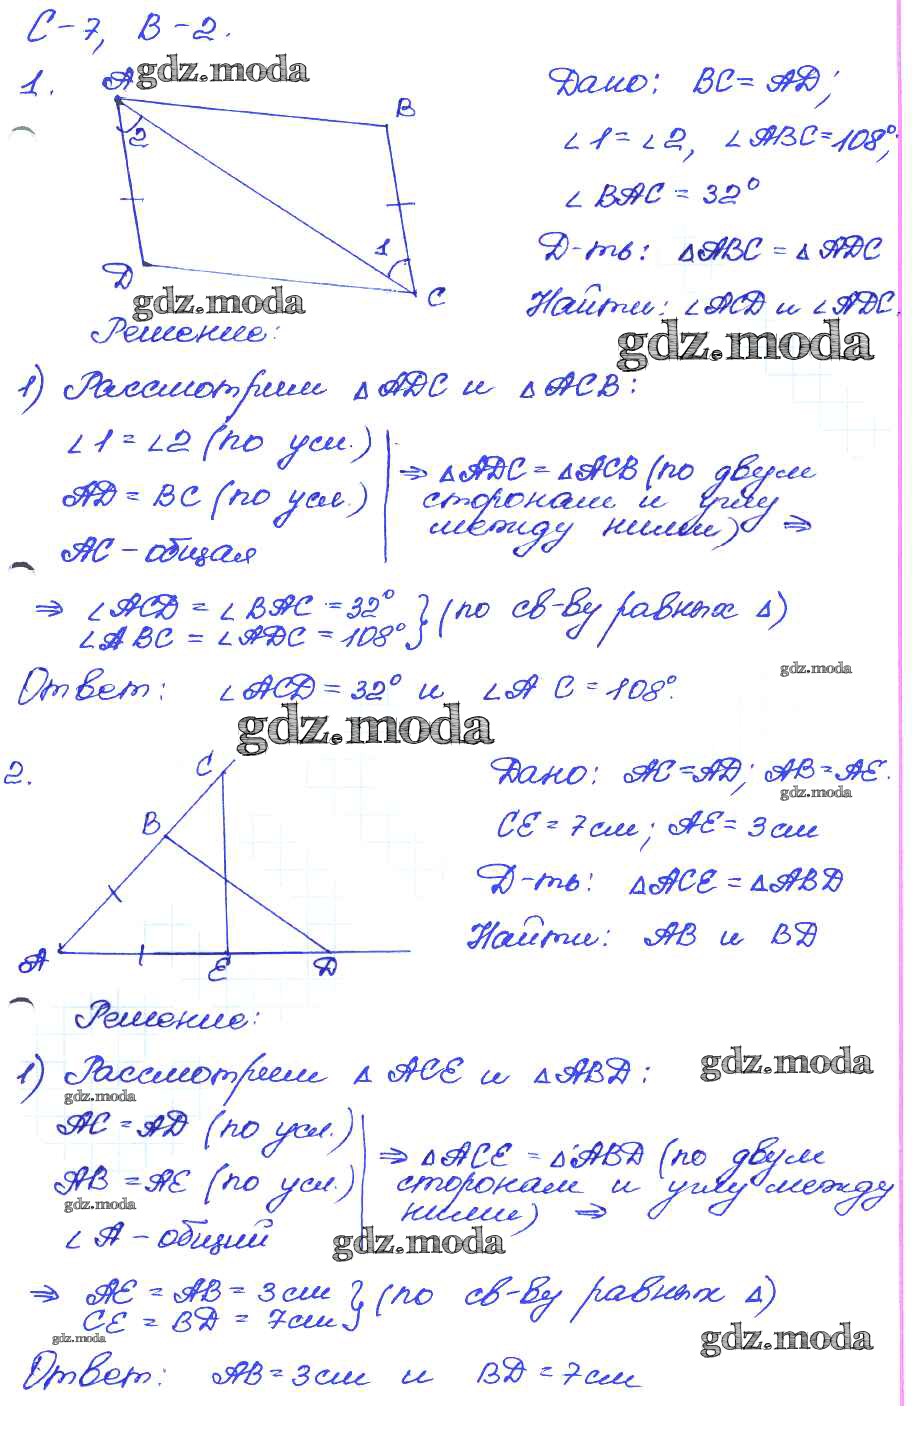 С-7, В-2.
gdz.moda
1.
A
B
2
1
D
C
gdz.moda
Дано: BC = AD;
∠1 = ∠2, ∠ABC = 108°;
∠BAC = 32°
Д-ть: △ABC = △ADC
Найти: ∠ACD и ∠ADC.
gdz.moda
Решение:
1) Рассмотрим △ADC и △ACB:
∠1 = ∠2 (по усл.)
AD = BC (по усл.)
AC - общая
⇒ △ADC = △ACB (по двум
сторонам и углу
между ними) ⇒
⇒ ∠ACD = ∠BAC = 32°
∠ABC = ∠ADC = 108° } (по св-ву равных △)
gdz.moda
Ответ: ∠ACD = 32° и ∠A C = 108°.
gdz.moda
2.
C
B
A
E
D
Дано: AC = AD; AB = AE.
gdz.moda
CE = 7 см; AE = 3 см
Д-ть: △ACE = △ABD
Найти: AB и BD
Решение:
gdz.moda
1) Рассмотрим △ ACE и △ABD:
gdz.moda
AC = AD (по усл.)
AB = AE (по усл.)
gdz.moda
∠A - общий
⇒ △ACE = △ABD (по двум
сторонам и углу между
ними) ⇒
gdz.moda
⇒ AE = AB = 3 см
CE = BD = 7 см } (по св-ву равных △)
gdz.moda
gdz.moda
Ответ: AB = 3 см и BD = 7 см